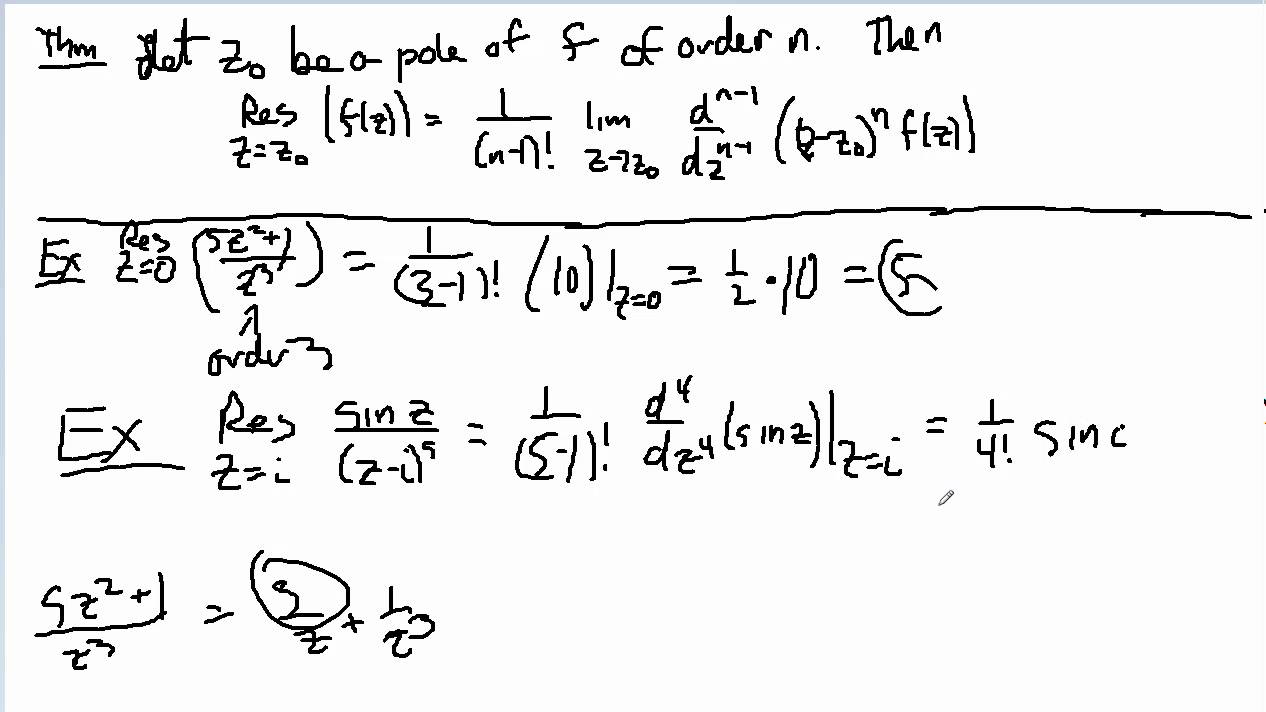 Thm Let z₀ be a pole of f of order n. Then
Res z=z₀ (f(z)) = 1/(n-1)! lim z→z₀ dⁿ⁻¹/dzⁿ⁻¹ ((z-z₀)ⁿ f(z))
Ex Res z=0 ((5z²+1)/z³) = 1/(3-1)! (10)|z=0 = 1/2 · 10 = 5
↑
order 3
Ex Res z=i sin z/(z-i)⁵ = 1/(5-1)! d⁴/dz⁴ (sin z)|z=i = 1/4! sin i
(5z²+1)/z³ = 5/z + 1/z³